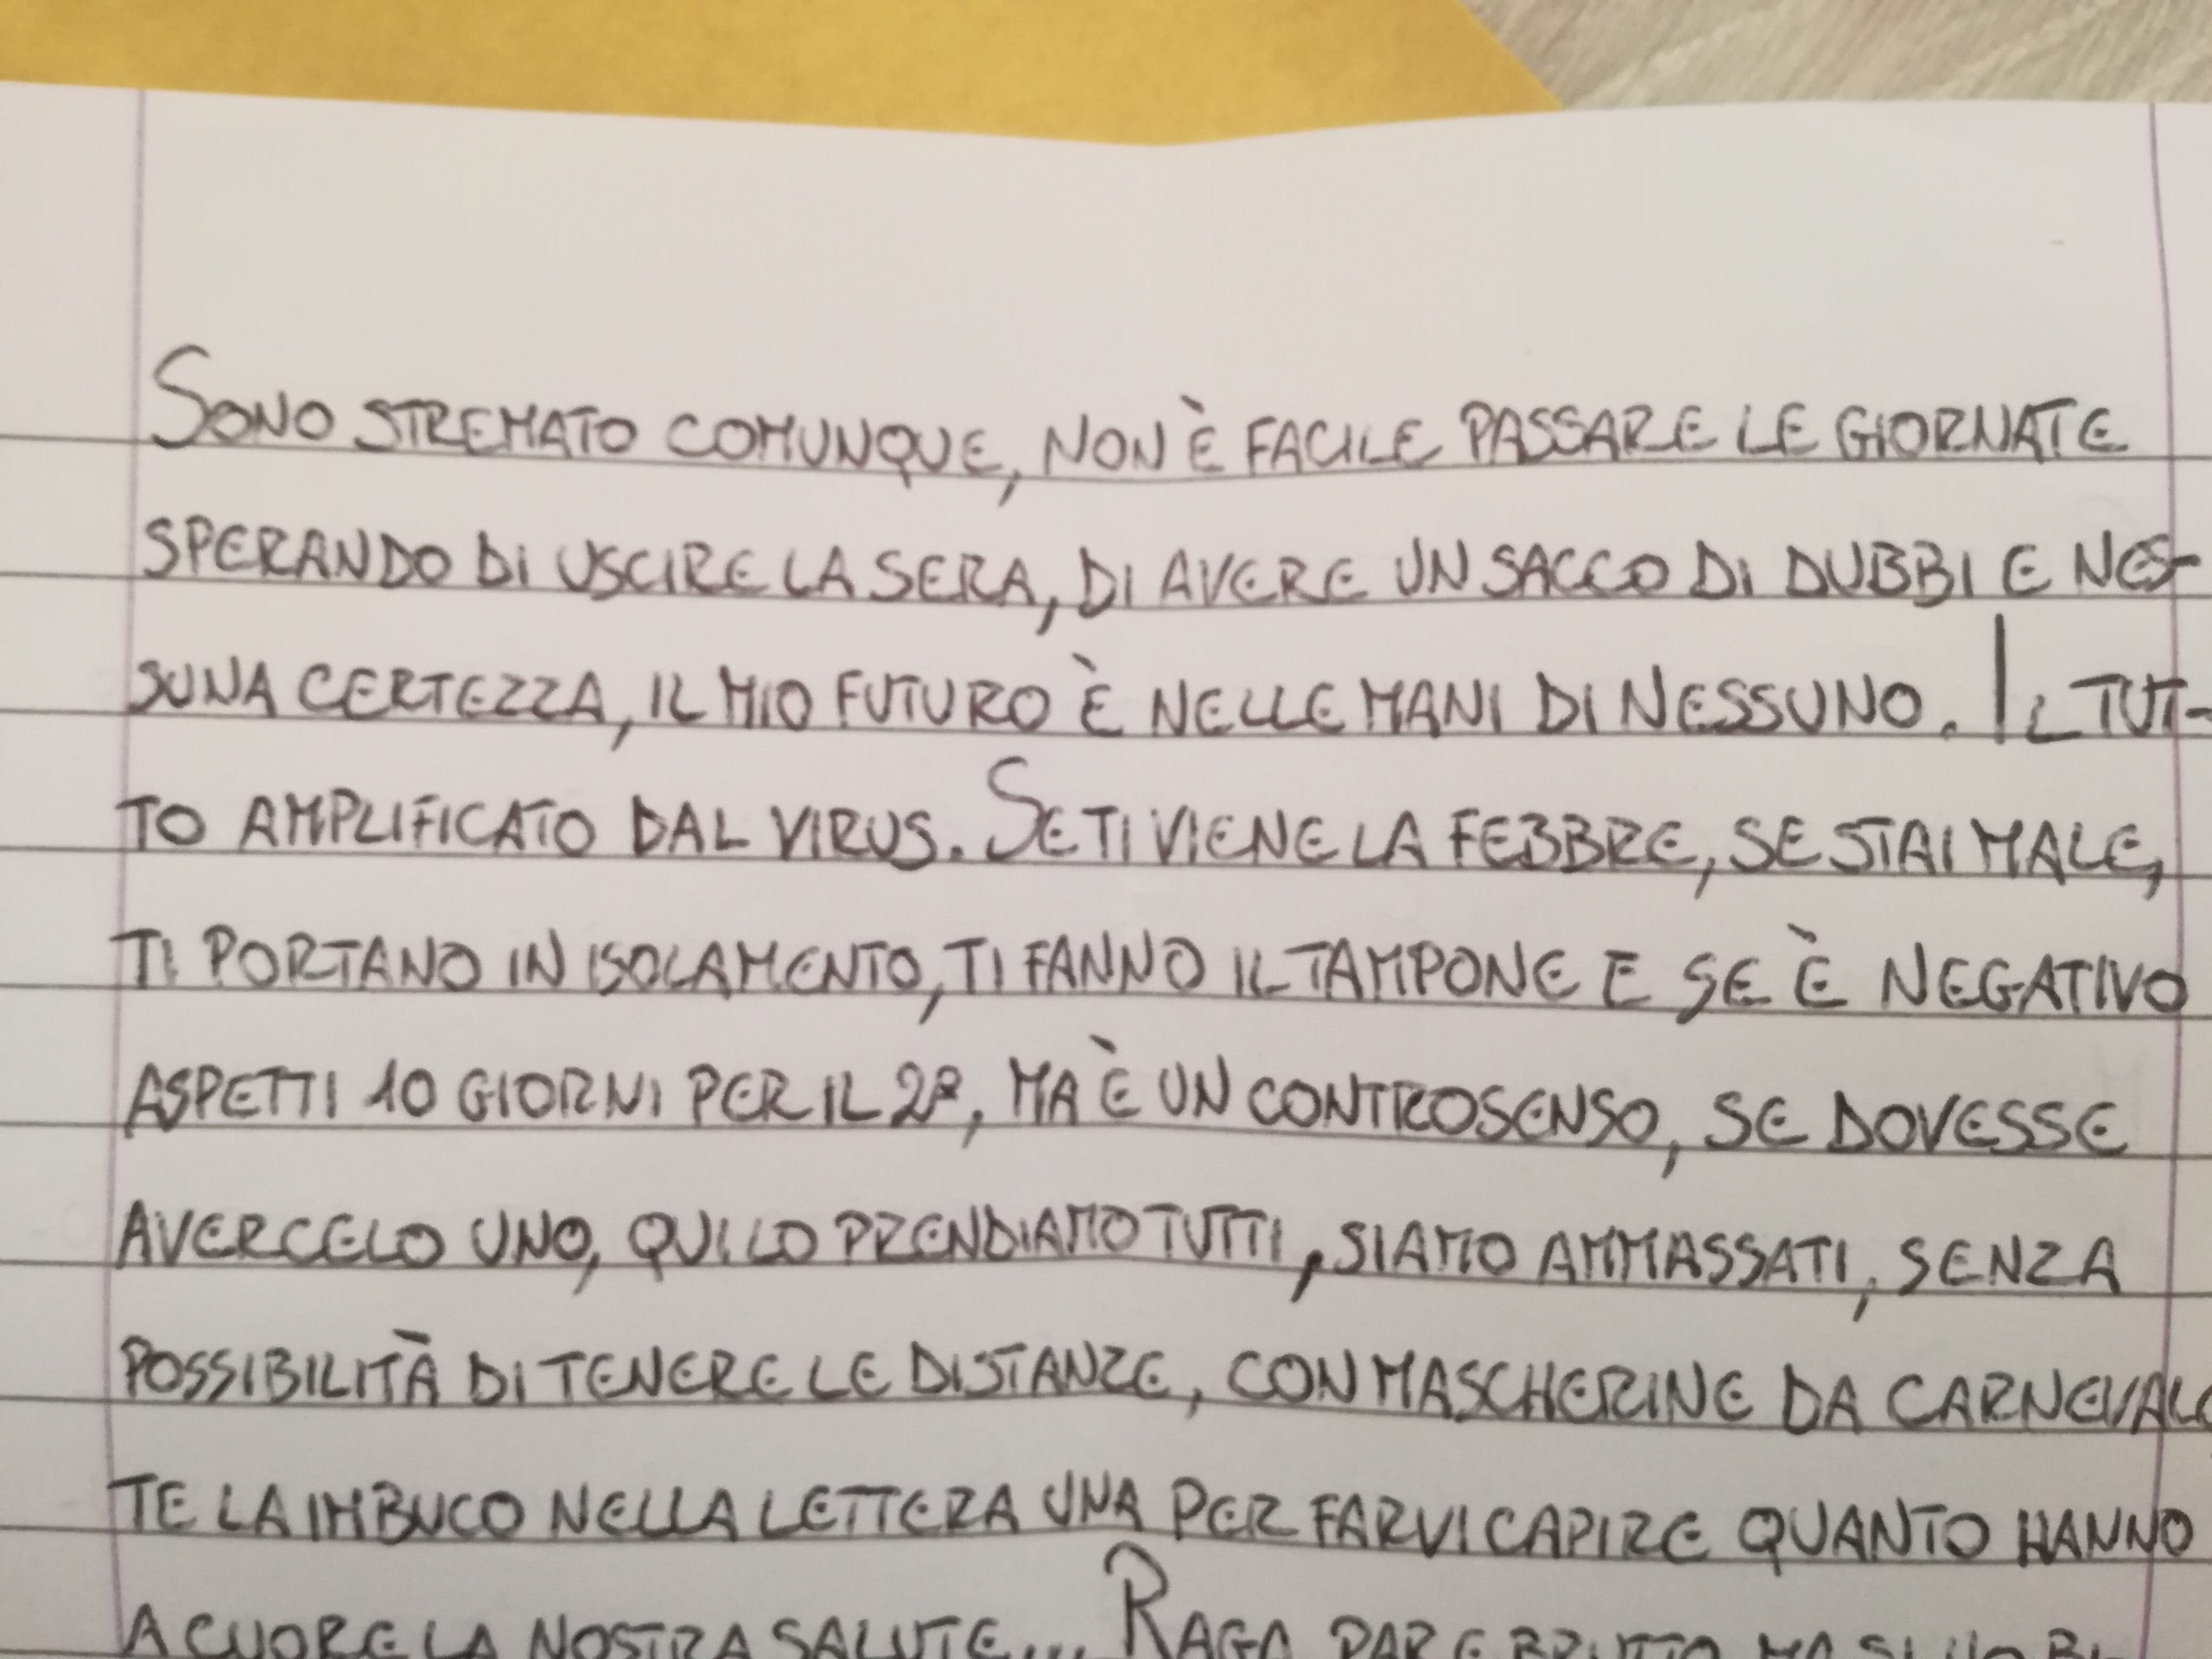 SONO STREMATO COMUNQUE, NON È FACILE PASSARE LE GIORNATE
SPERANDO DI USCIRE LA SERA, DI AVERE UN SACCO DI DUBBI E NES-
SUNA CERTEZZA, IL MIO FUTURO È NELLE MANI DI NESSUNO. IL TUT-
TO AMPLIFICATO DAL VIRUS. SE TI VIENE LA FEBBRE, SE STAI MALE,
TI PORTANO IN ISOLAMENTO, TI FANNO IL TAMPONE E SE È NEGATIVO
ASPETTI 10 GIORNI PER IL 2º, MA È UN CONTROSENSO, SE DOVESSE
AVERCELO UNO, QUI LO PRENDIAMO TUTTI, SIAMO AMMASSATI, SENZA
POSSIBILITÀ DI TENERE LE DISTANZE, CON MASCHERINE DA CARNEVALE
TE LA IMBUCO NELLA LETTERA UNA PER FARVI CAPIRE QUANTO HANNO
A CUORE LA NOSTRA SALUTE... RAGA PARE BRUTTO MA